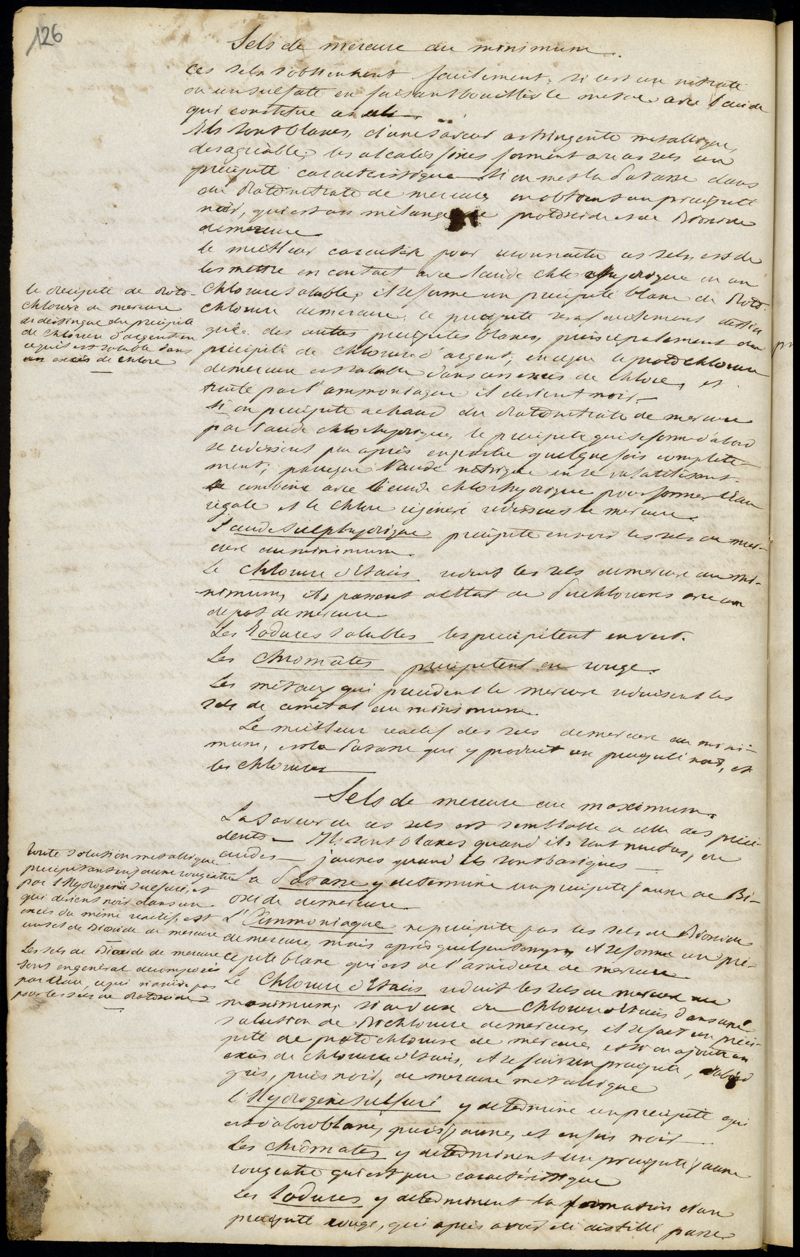 126
Sels de mercure au minimum.
Ces sels s'obtiennent facilement, si c'est un nitrate
ou un sulfate en faisant bouillir le métal avec l'acide
qui constitue ce sel.
Ils sont blancs, d'une saveur astringente métallique,
désagréable, les alcalis fixes forment avec ces sels un
précipité caractéristique si on met la potasse dans
du Protonitrate de mercure on obtient un précipité
noir, qui est un mélange de protoxide et de Bioxide
de mercure
le meilleur caractère pour reconnaître ces sels est de
les mettre en contact avec l'acide chlorhydrique ou un
chlorure soluble, il se forme un précipité blanc de Proto-
chlorure de mercure, ce précipité est facilement distin
gué des autres précipités blancs, principalement du
précipité de chlorure d'argent, en ce que le protochlorure
de mercure est soluble dans un excès de chlore, et
traité par l'ammoniaque il devient noir.
le précipité de Proto-
chlorure de mercure
se distingue du précipité
de chlorure d'argent en
ce qu'il est soluble dans
un excès de chlore
Si on précipite à chaud du Protonitrate de mercure
par l'acide chlorhydrique, le précipité qui se forme d'abord
se redissout peu après en partie quelquefois complète-
ment, parceque l'acide nitrique en se
se combine avec l'acide chlorhydrique pour former l'eau
régale et le chlore régénéré redissout le mercure.
L'acide sulphydrique précipite en noir les sels de mer-
cure au minimum.
Le chlorure d'Etain réduit les sels de mercure au mi-
nimum, ils passent à l'état de avec un
dépôt de mercure
Les Iodures solubles les précipitent en vert.
Les chromates précipitent en rouge.
Les métaux qui précèdent le mercure réduisent les
sels de ce métal au minimum.
Le meilleur réactif des sels de mercure au mini-
mum, est la Potasse qui y produit un précipité noir, et
les chlorures
Sels de mercure au maximum.
La saveur de ces sels est semblable à celle des précé-
dents — Ils sont blancs quand ils sont neutres, ou
acides — jaunes quand ils sont basiques —
La Potasse y détermine un précipité jaune de Bi-
oxide de mercure.
L'Ammoniaque ne précipite pas les sels de Bioxide
de mercure, mais après quelque temps, il se forme un pré-
cipité blanc qui est de l'amidure de mercure
toute solution métallique
précipitant en jaune rougeâtre
par l'Hydrogène sulfuré, et
qui devient noir dans un
excès du même réactif, est
un sel de Bioxide de mercure
Les sels de Bioxide de mercure
sont en général décomposés
par l'eau, ce qui n'arrive pas
pour les sels de Protoxide
Le chlorure d'Etain réduit les sels de mercure au
maximum, si on verse du chlorure d'Etain dans une
solution de Bichlorure de mercure, il se fait un préci-
pité de protochlorure de mercure, et si on ajoute un
excès de chlorure d'Etain, il se fait un précipité, d'abord
gris, puis noir, de mercure métallique
L'Hydrogène sulfuré y détermine un précipité qui
est d'abord blanc, puis jaune, et enfin noir —
Les chrômates y déterminent un précipité jaune
rougeâtre qui est peu caractéristique
Les Iodures y déterminent la formation d'un
précipité rouge, qui après avoir été distillé passe